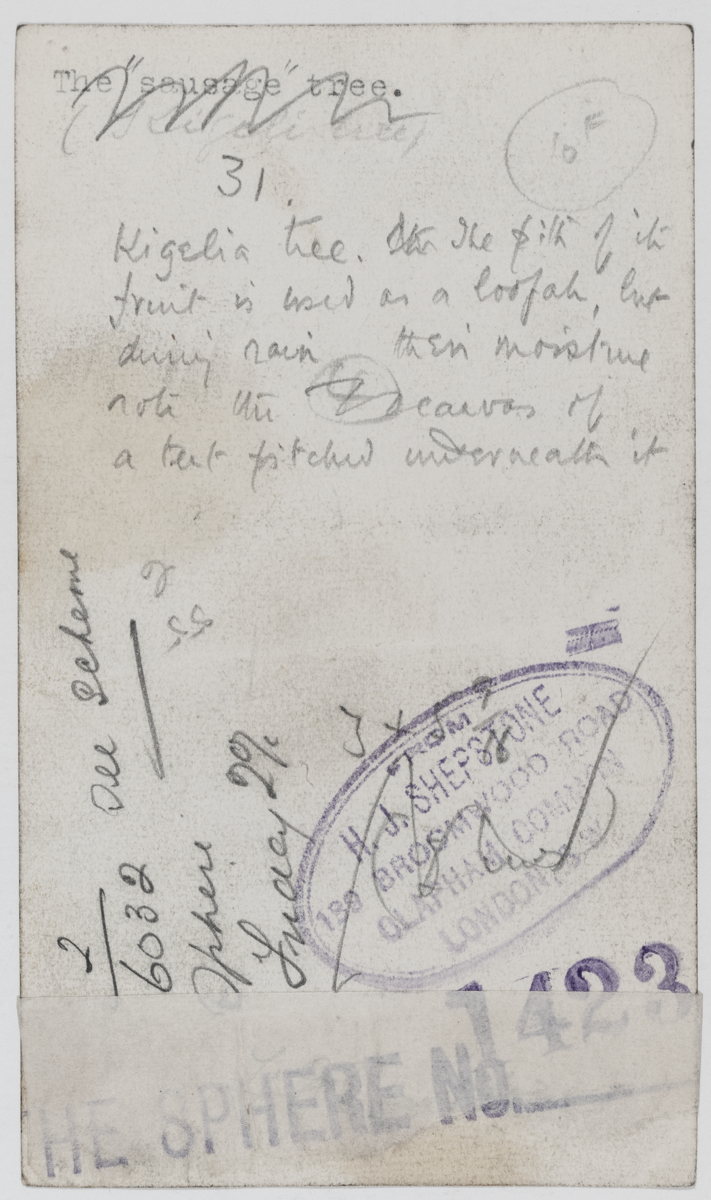 The "sausage" tree.
(Kigelia tree)
10
31.
Kigelia tree. The pith of its
fruit is used as a loofah, but
during rain, their moisture
rots the canvas of
a tent pitched underneath it
See Scheme
2
6032
Sphere
Friday 29/
FROM
H. J. SHEPSTONE
139 BROOMWOOD ROAD
CLAPHAM COMMON
LONDON, S.W.
1423
THE SPHERE No.